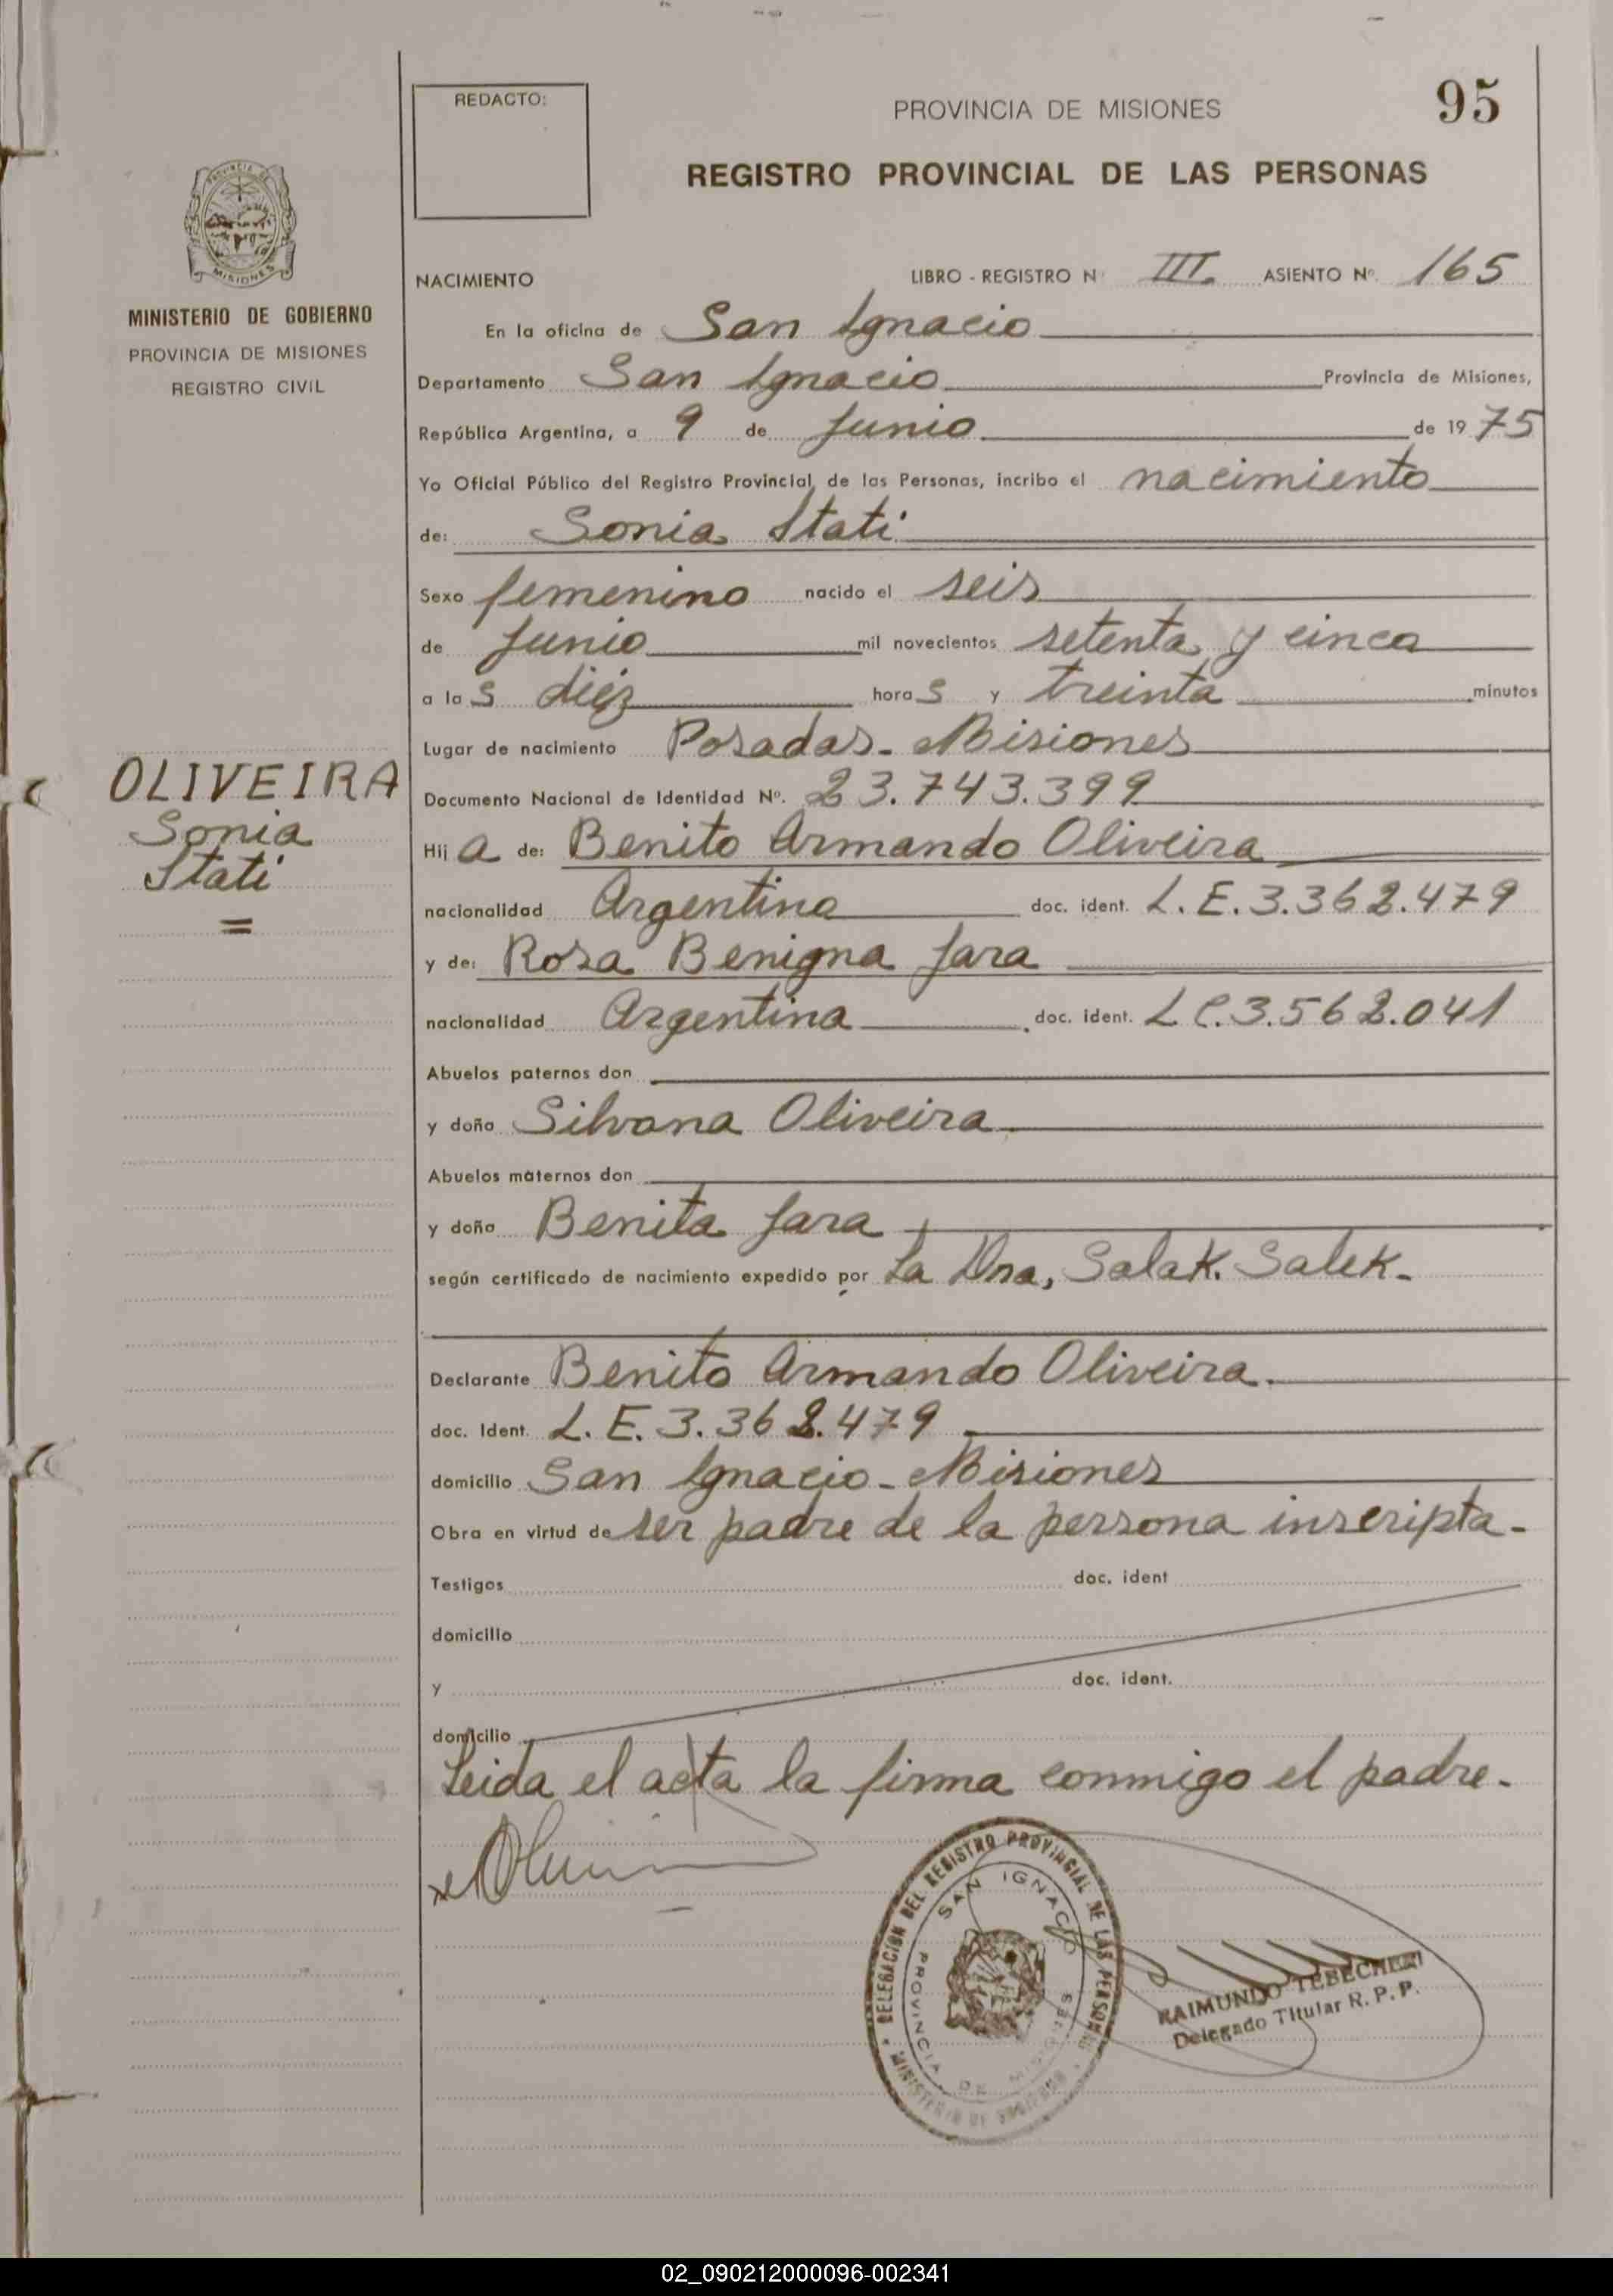 REDACTO:
PROVINCIA DE MISIONES
95
REGISTRO PROVINCIAL DE LAS PERSONAS
MISIONES
MINISTERIO DE GOBIERNO
PROVINCIA DE MISIONES
REGISTRO CIVIL
NACIMIENTO LIBRO - REGISTRO N III ASIENTO Nº. 165
En la oficina de San Ignacio
Departamento San Ignacio Provincia de Misiones,
República Argentina, a 9 de Junio de 1975
Yo Oficial Público del Registro Provincial de las Personas, incribo el nacimiento
de: Sonia Itati
Sexo femenino nacido el seis
de Junio mil novecientos setenta y cinco
a las diez horas y treinta minutos
Lugar de nacimiento Posadas - Misiones
OLIVEIRA
Sonia
Itati
=
Documento Nacional de Identidad Nº. 23.743.399
Hija de: Benito Armando Oliveira
nacionalidad Argentina doc. ident. L.E.3.362.479
y de: Rosa Benigna Jara
nacionalidad Argentina doc. ident. L C.3.562.041
Abuelos paternos don
y doña Silvana Oliveira
Abuelos maternos don
y doña Benita Jara
según certificado de nacimiento expedido por La Dra, Salak. Salek-
Declarante Benito Armando Oliveira.
doc. Ident. L. E. 3.362.479
domicilio San Ignacio - Misiones
Obra en virtud de ser padre de la persona inscripta-
Testigos doc. ident
domicilio
y doc. ident.
domicilio
Leida el acta la firma conmigo el padre-
DELEGACION DEL REGISTRO PROVINCIAL DE LAS PERSONAS
MINISTERIO DE GOBIERNO
SAN IGNACIO
PROVINCIA DE MISIONES
RAIMUNDO
Delegado Titular R. P. P.
02_090212000096-002341